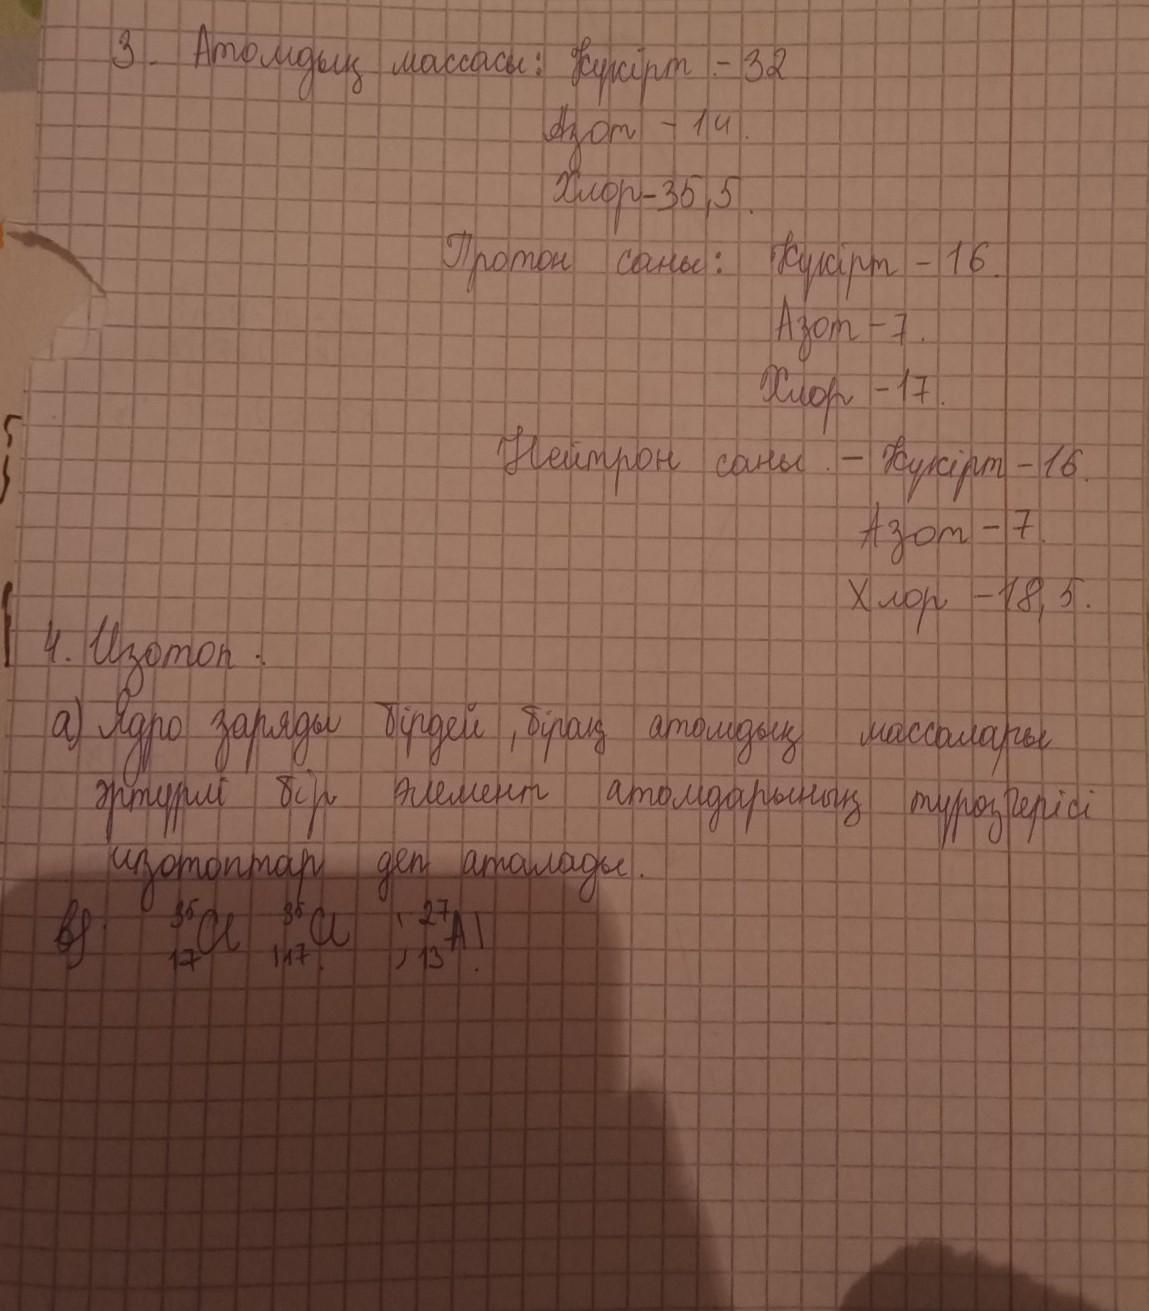 3. Атомдық массасы: Күкірт - 32
Азот - 14.
Хлор - 35,5.
Протон саны: Күкірт - 16.
Азот - 7.
Хлор - 17.
Нейтрон саны. - Күкірт - 16.
Азот - 7.
Хлор - 18,5.
4. Изотоп.
а) Ядро заряды бірдей, бірақ атомдық массалары
әртүрлі бір элемент атомдарының түрөзгерісі
изотоптар деп аталады.
в) ³⁵₁₇Cl ³⁵₁₇Cl , ²⁷₁₃Al.